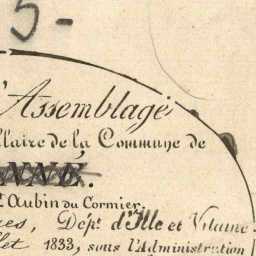 5-
d'Assemblage
llaire de la Commune de
NNE.
t Aubin du Cormier.
es, Dépt. d'Ille et Vilaine
llet 1833, sous l'Administration